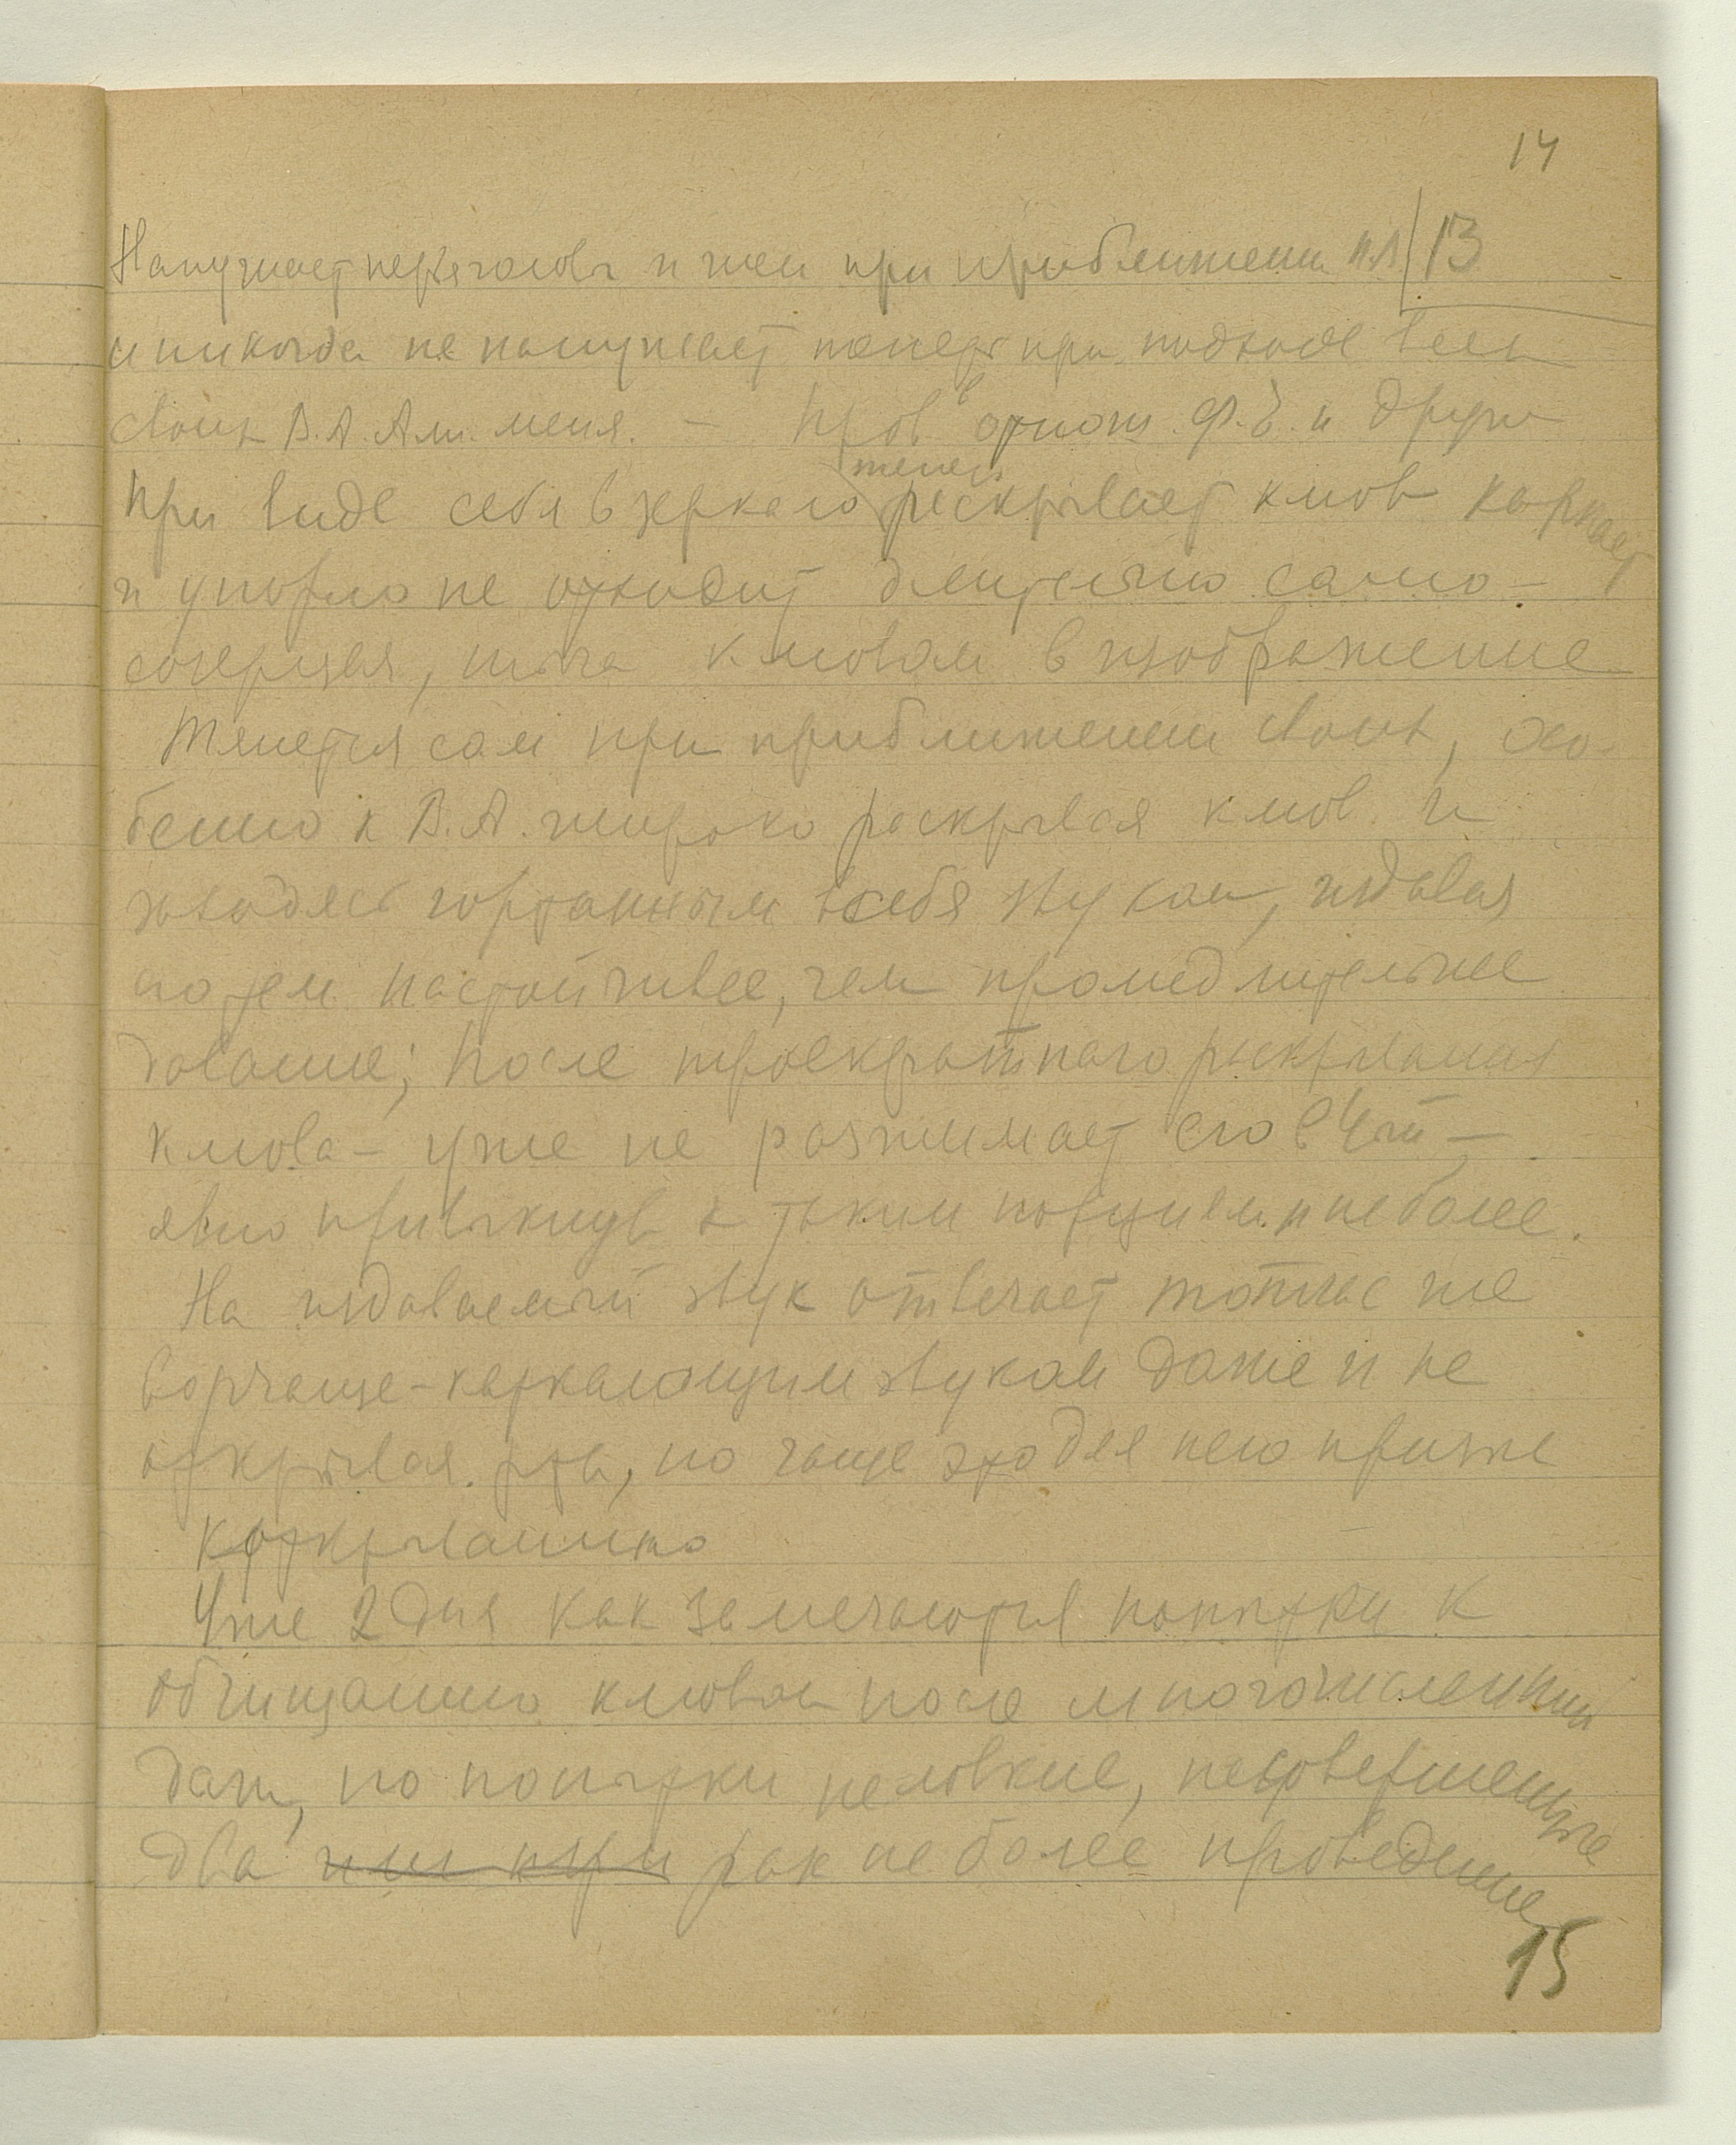 14
Напужает перья головы и шеи при приближении
13
и никогда не напужает теперь при подходе всех
своих В.А. А.М. меня. —
теперь
При виде себя в зеркало раскрывает клюв каркает
и упорно не отходит длительно само-
созерцая, тыча клювом в изображение
Тянется сам при приближении своих, осо-
бенно к В.А. широко раскрывая клюв и
заходясь гортанным в себя звуком, издавая
его тем настойчивее, чем промедлительнее
давание; После троекратного раскрывания
клюва — уже не разжимает его в 4 ый —
явно привыкнув к таким порциям и не более.
На издаваемый звук отвечает тотчас же
ворчаще-каркающим звуком даже и не
открывая рта, но чаще это для него
к открыванию
Уже 2 дня как замечаются попытки к
обчищанию клюва после многочисленных
дач, но попытки неловкие, несовершенные
два или три раз не более проведение
15